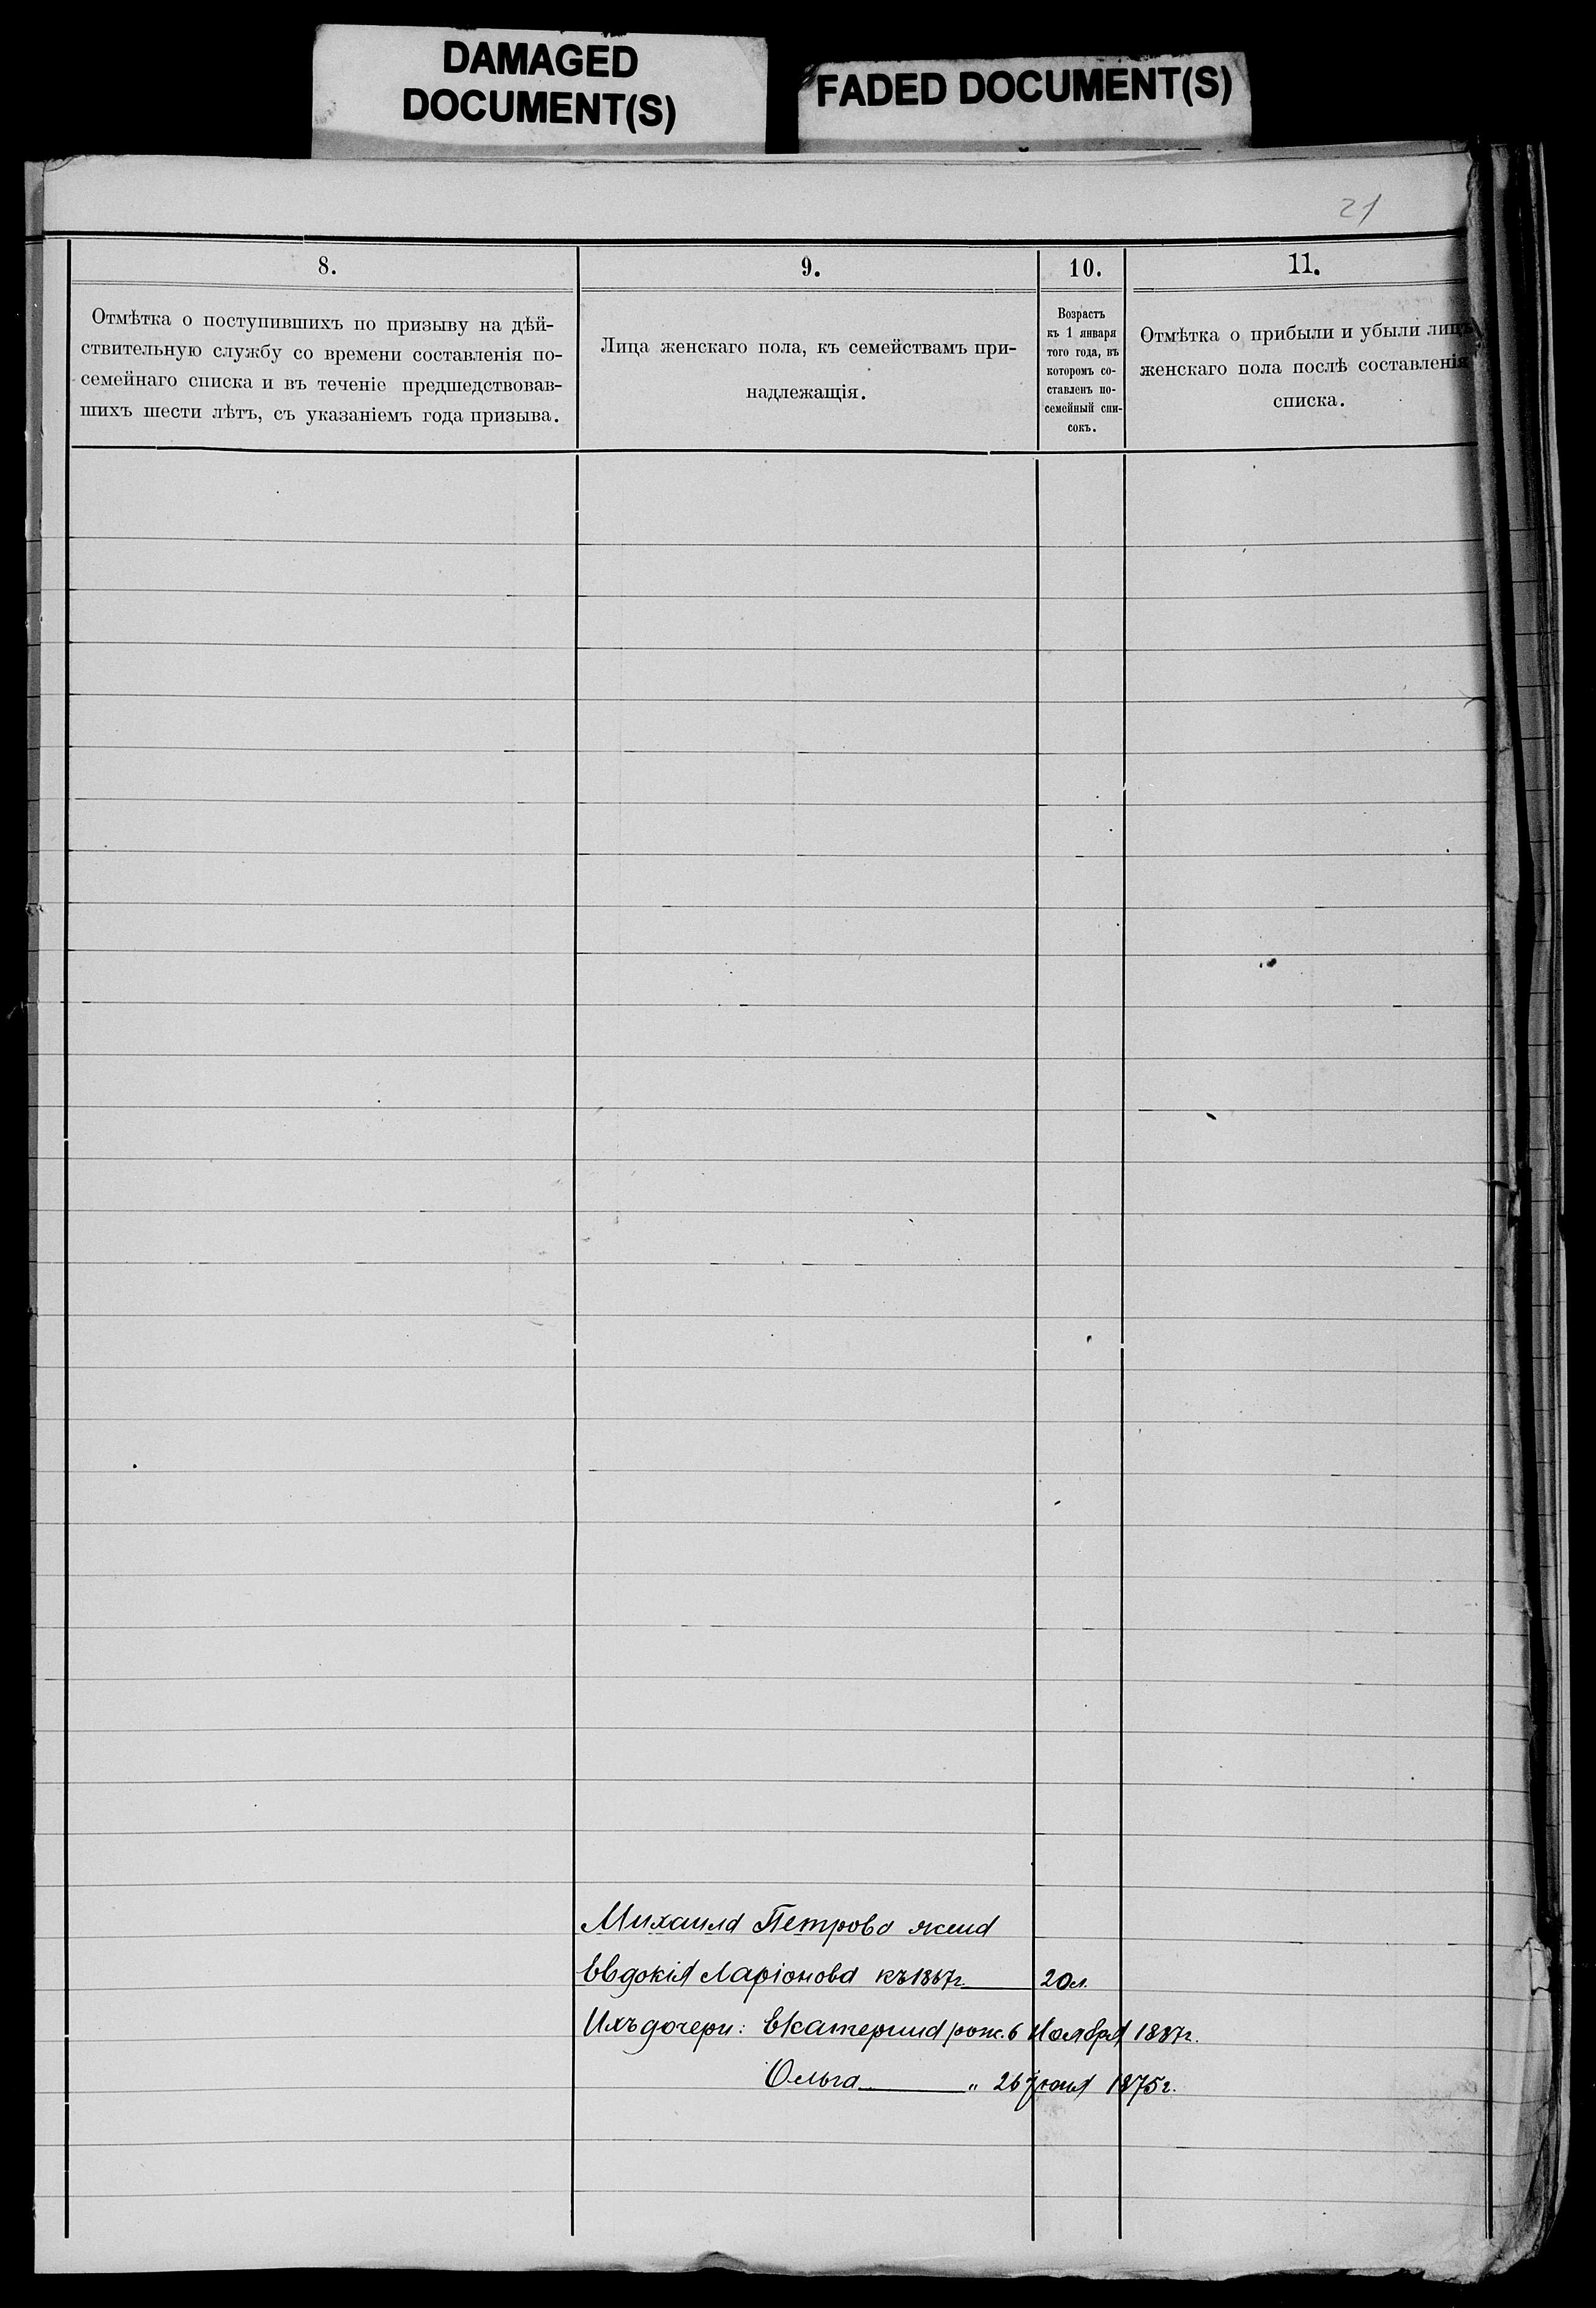 DAMAGED
DOCUMENT(S)
FADED DOCUMENT(S)
21
8.
Отмѣтка о поступившихъ по призыву на дѣй-
ствительную службу со времени составленія по-
семейнаго списка и въ теченіе предшедствовав-
шихъ шести лѣтъ, съ указаніемъ года призыва.
9.
Лица женскаго пола, къ семействамъ при-
надлежащія.
10.
Возрастъ
къ 1 января
того года, въ
которомъ со-
ставленъ по-
семейный спи-
сокъ.
11.
Отмѣтка о прибыли и убыли лицъ
женскаго пола послѣ составленія
списка.
Михаила Петрова жена
Евдокія Ларіонова къ 1887г. 20л.
Ихъ дочери: Екатерина рож. 6 Ноября 1887г.
Ольга " 26 Іюня 1875г.